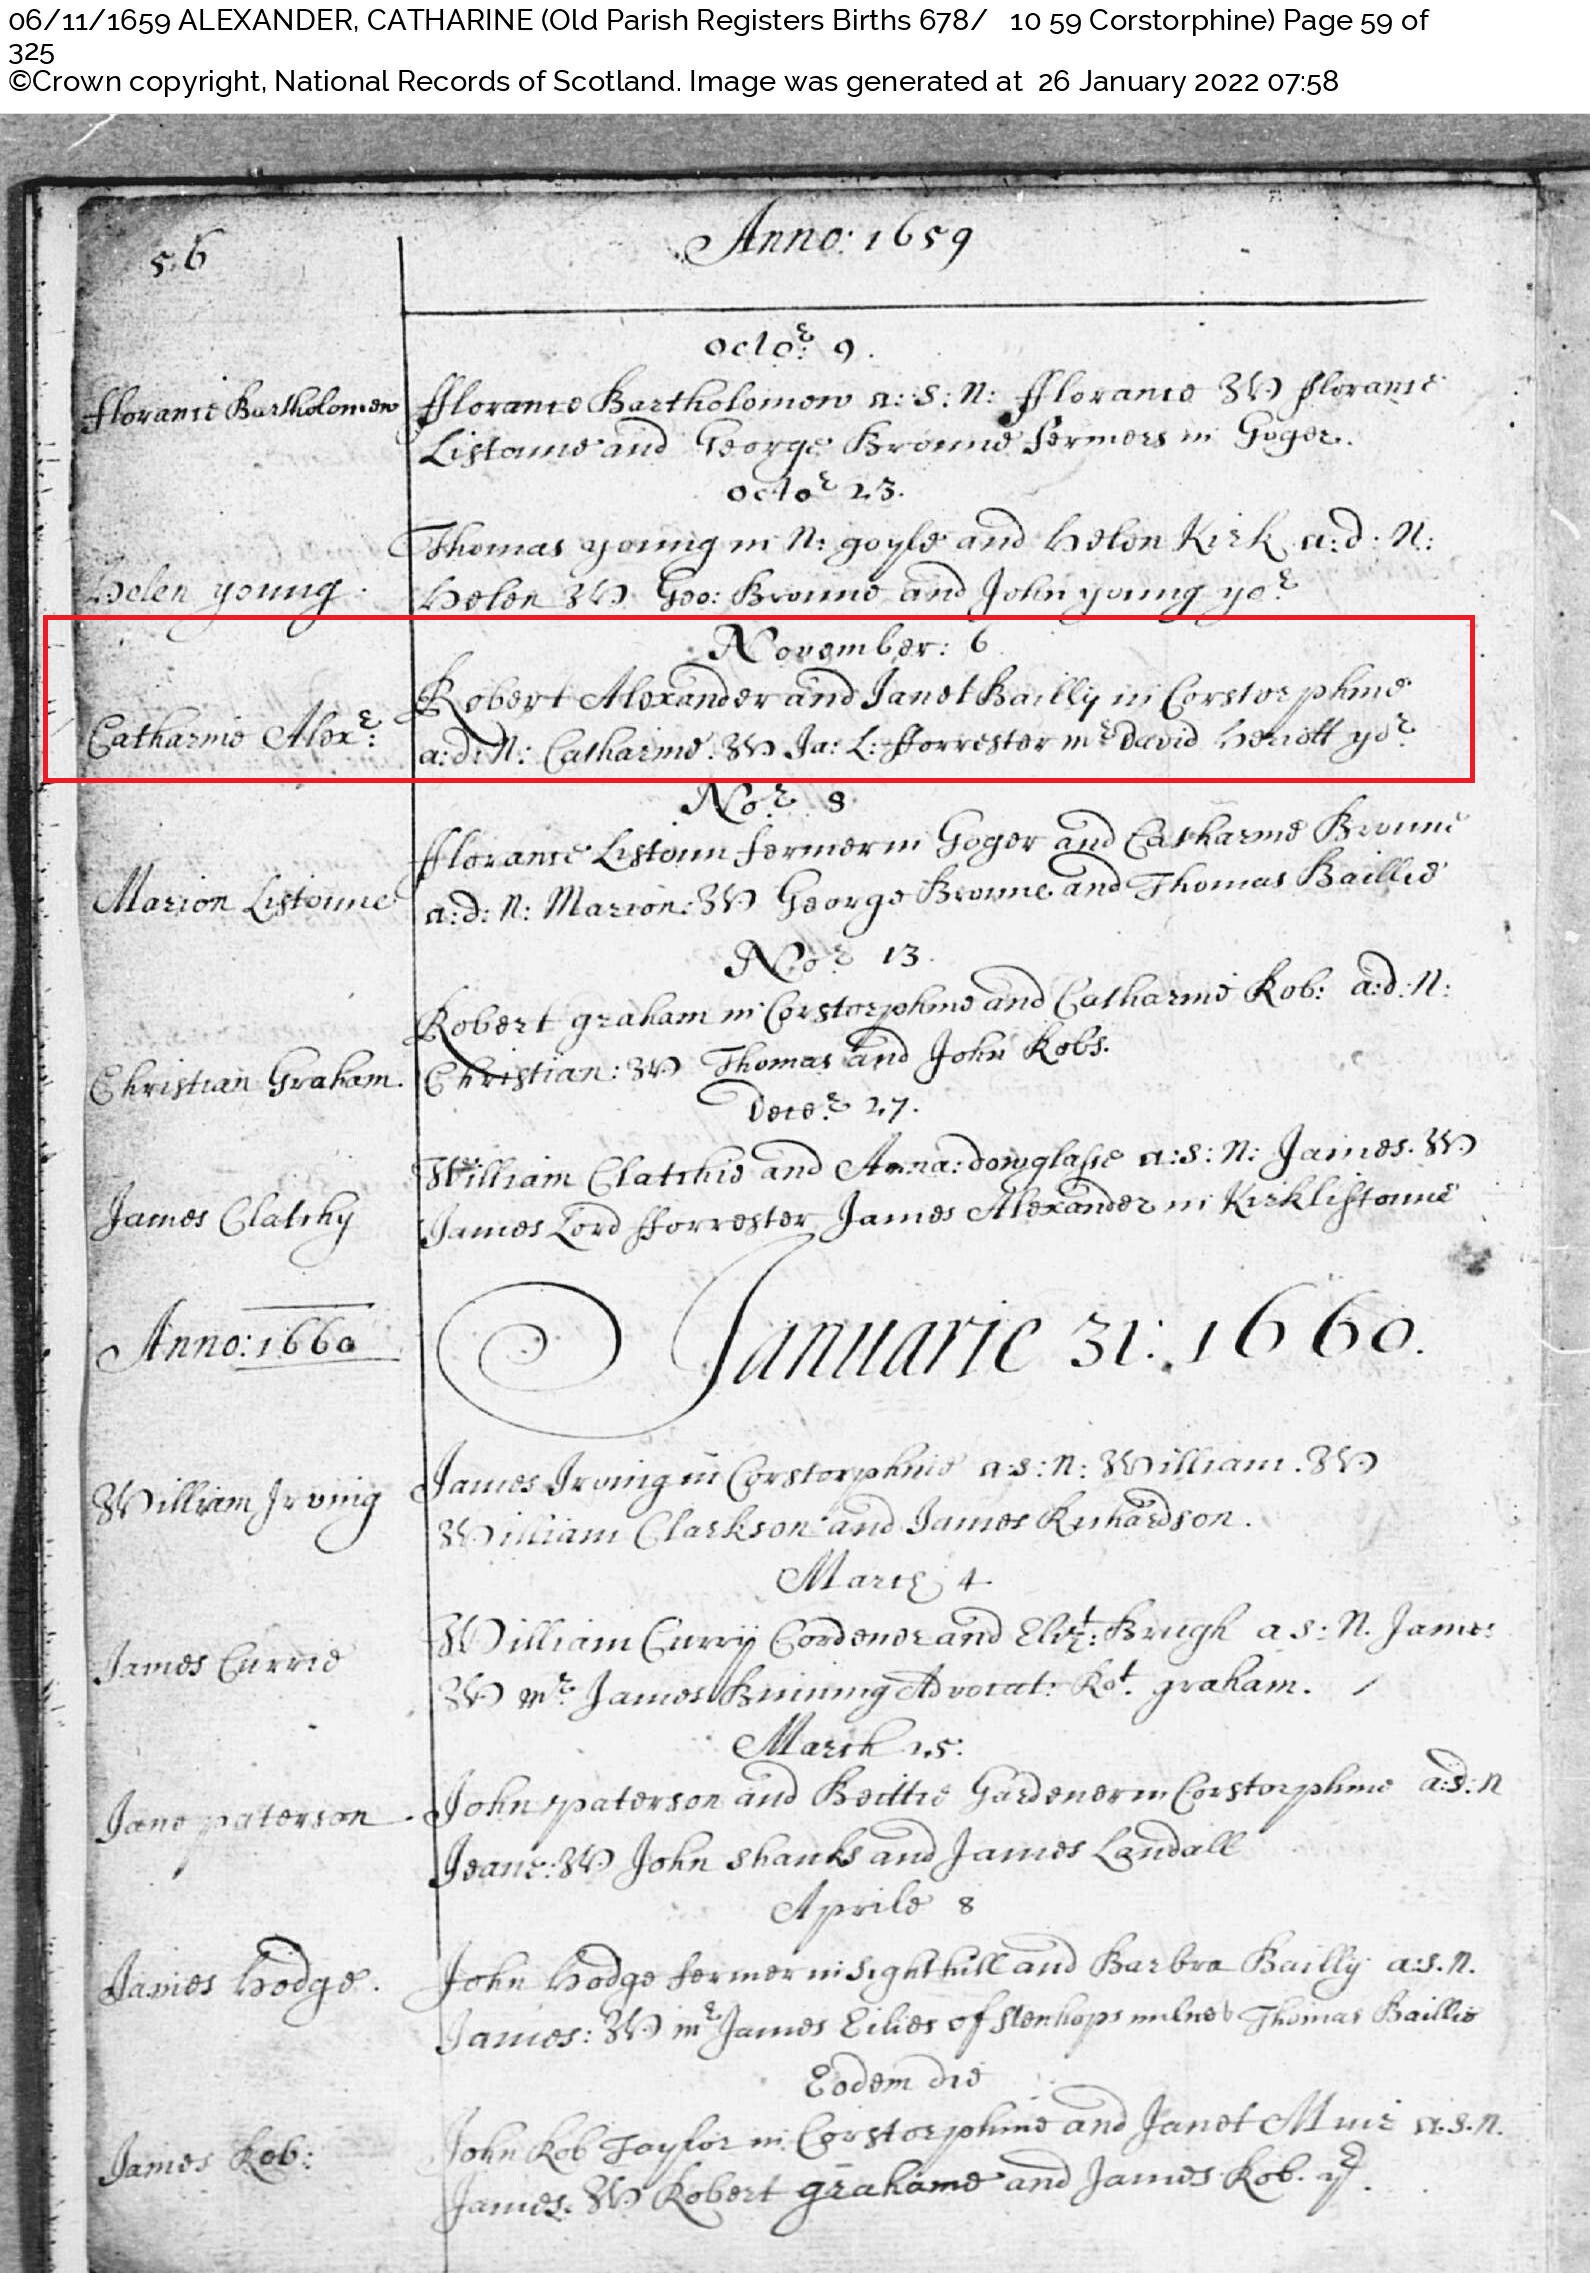 06/11/1659 ALEXANDER, CATHARINE (Old Parish Registers Births 678/ 10 59 Corstorphine) Page 59 of
325
©Crown copyright, National Records of Scotland. Image was generated at 26 January 2022 07:58
56
Anno: 1659
Octo:r 9.
fflorance Bartholomew
fflorance Bartholomew a:s:N: fflorance W fflorance
Listoune and George Broune fermers in Goger.
Octor 23.
Thomas young in N: goyle and Helen Kirk a:d:N:
Helen young.
Helen W Geo: Broune and John young yor
November: 6
Robert Alexander and Janet Bailly in Corstorphine
Catharine Alexr:
a:d:N: Catharine: W Ja: L: fforrester mr David Heriott yor
Nor 8
fflorance Listoun fermer in Goger and Catharine Broune
Marion Listoune
a:d:N: Marion: W George Broune and Thomas Baillie
Nor 13.
Robert graham in Corstorphine and Catharine Kob: a:d:N:
Christian Graham.
Christian: W Thomas and John Kobs.
Decer 27.
William Clatchie and Anna: douglasse a:s:N: James. W
James Clatchy
James Lord fforrester James Alexander in Kirklistoune
Anno: 1660
Januarie 31: 1660.
William Irving
James Irving in Corstorphine a:s:N: William. W
William Clarkson and James Richardson.
March 4
William Curry Cordener and Elizt: Brugh a s:N. James
James Currie
W mr James Bruning Advocat: Rot. graham.
March 25:
John paterson and Beittie Gardener in Corstorphine a:d:N
Jane paterson
Jeane: W John Shanks and James Landall
Aprile 8
James Hodge.
John Hodge fermer in Sighthill and Barbra Bailly a:s.N.
James: W mr James Eilies of Stenhops milne Thomas Baillie
Eodem die
John Kob Taylor in Corstorphine and Janet Muir a.s.N.
James Kob:
James. W Robert grahame and James Kob.